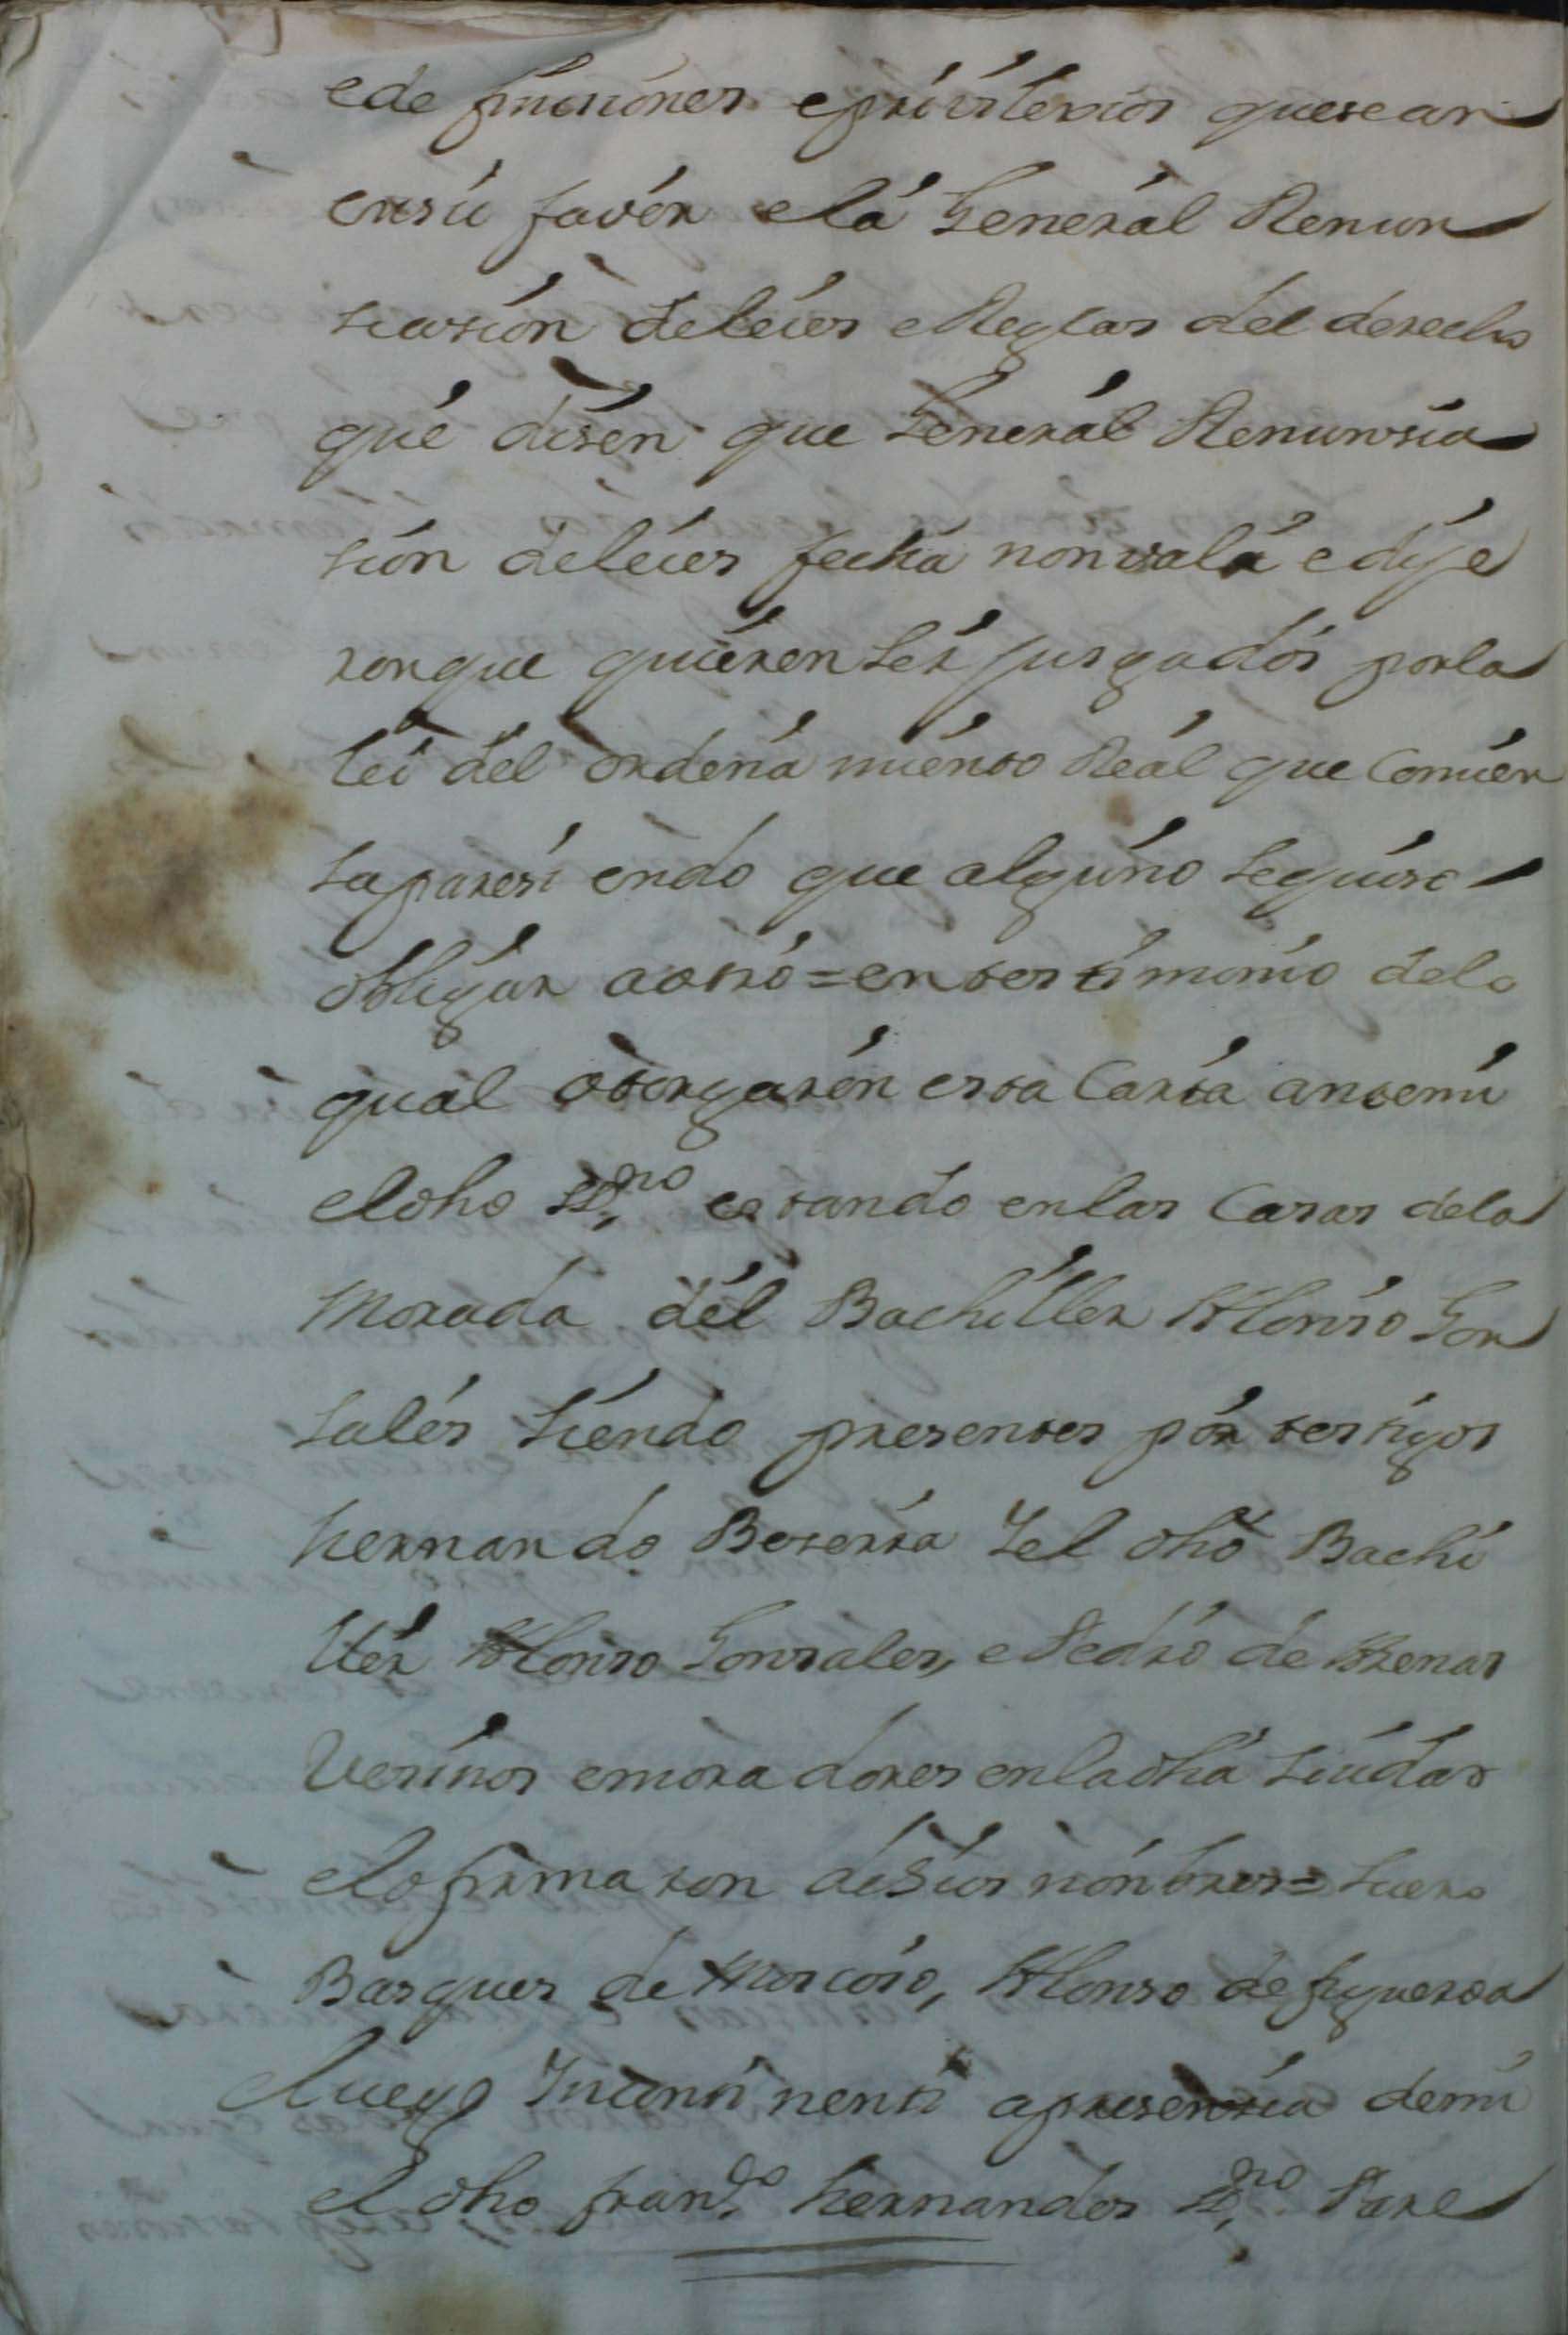 e de finisiones e privilexios que sean
en su favór e lá General Renun
siasión de leies e Reglas del derecho
qué disen que General Renunsia
sión de leies fecha non vala e dije
ron que quieren ser jusgados por la
lei del ordenamiento Reál que Comien
sa paresiendo que alguno se quiso
obligar a otro = en testimonio de lo
qual otorgarón esta Carta ante mi
el dho SS.no estando en las Casas de la
Morada del Bachiller Alonso Gon
sales siendo presentes por testigos
hernando Beserra Y el dho Bachi
ller Alonso Gonsales, e Pedro de Arenas
Vesinos e moradores en la dha siudad
e lo firmaron de sus nonbres = Suero
Basques de Moscoso, Alonso de figueroa
e luego Yncontinenti a presensia de mi
el dho fran.co hernandes SS.no Pare